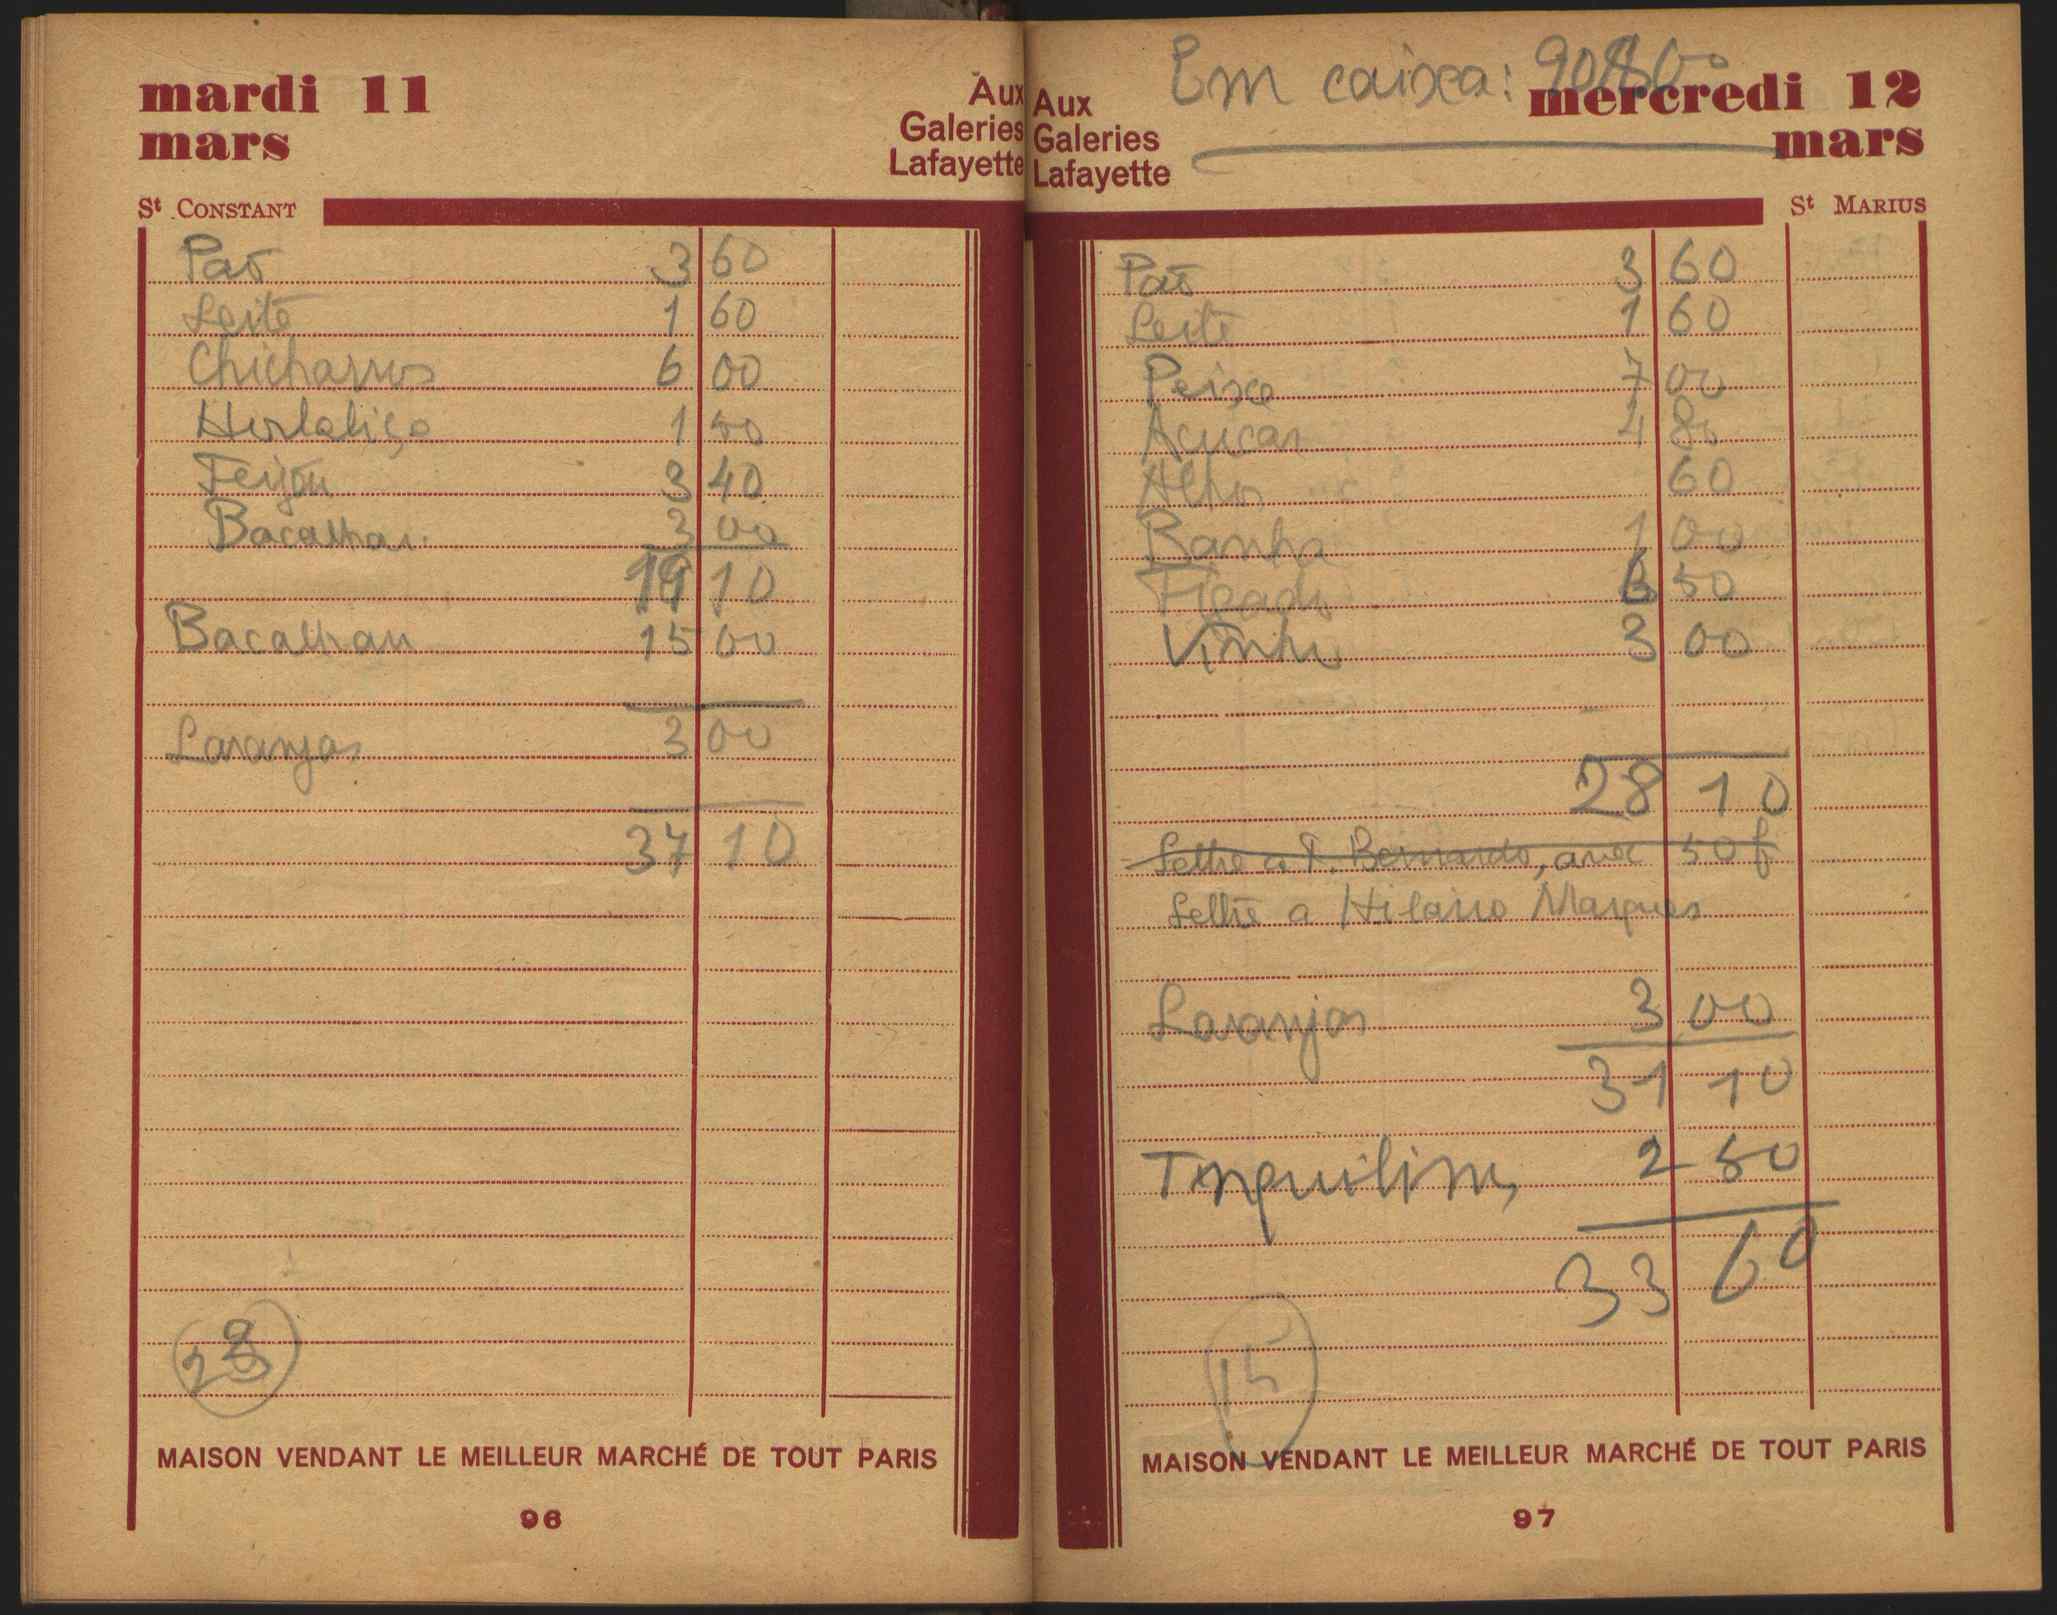 mardi 11
mars
Aux
Galeries
Lafayette
St CONSTANT
Paõ 3 60
Leite 1 60
Chicharros 6 00
Hortaliça 1 50
Feijão 3 40
Bacalhau 3 00
19 10
Bacalhau 15 00
Laranjas 3 00
37 10
23
MAISON VENDANT LE MEILLEUR MARCHÉ DE TOUT PARIS
96
Em caixa:
Aux
Galeries
Lafayette
mercredi 12
mars
St MARIUS
Paõ 3 60
Leite 1 60
Peixe 7 00
Açucar 4 80
Alhos 60
Banha 1 00
Figado 6 50
Vinho 3 00
28 10
Lettre a T. Bernardo, avec 50 f
Lettre a Hilario Marques
Laranjas 3 00
31 10
Inquilino 2 50
33 60
15
MAISON VENDANT LE MEILLEUR MARCHÉ DE TOUT PARIS
97